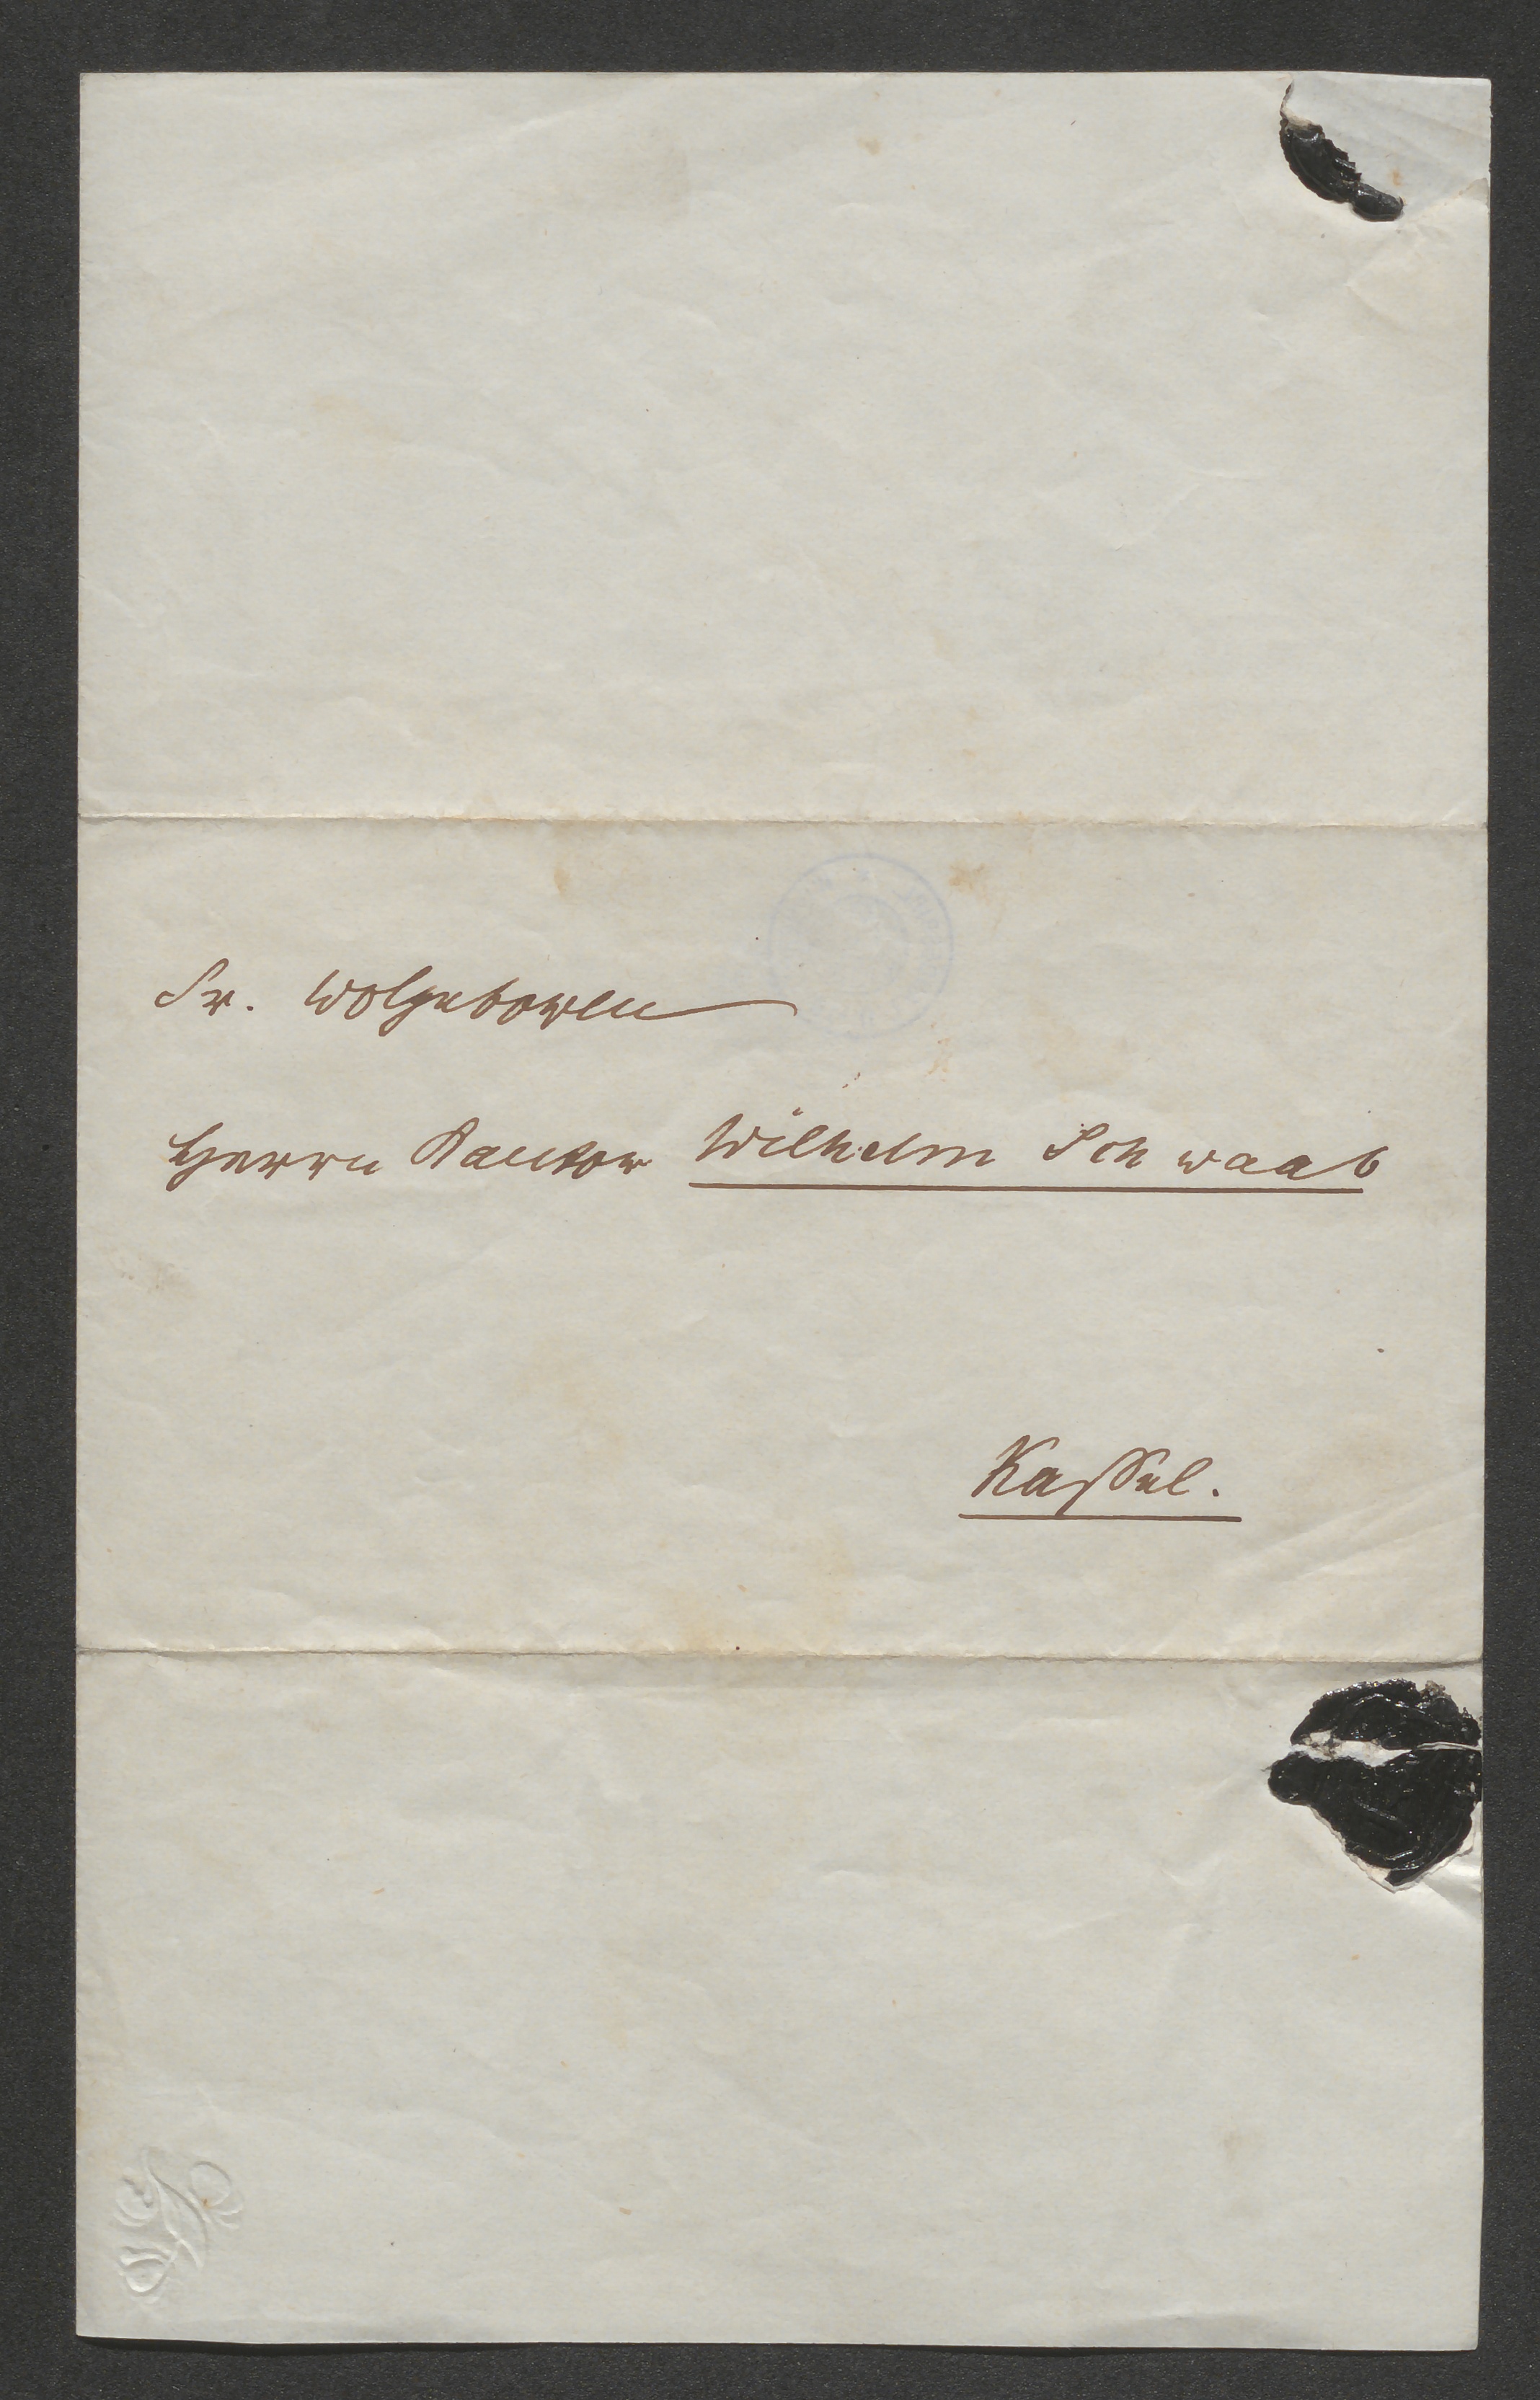 Sr. Wolgeboren
Herrn Kantor Wilhelm Schwaab
Kassel.